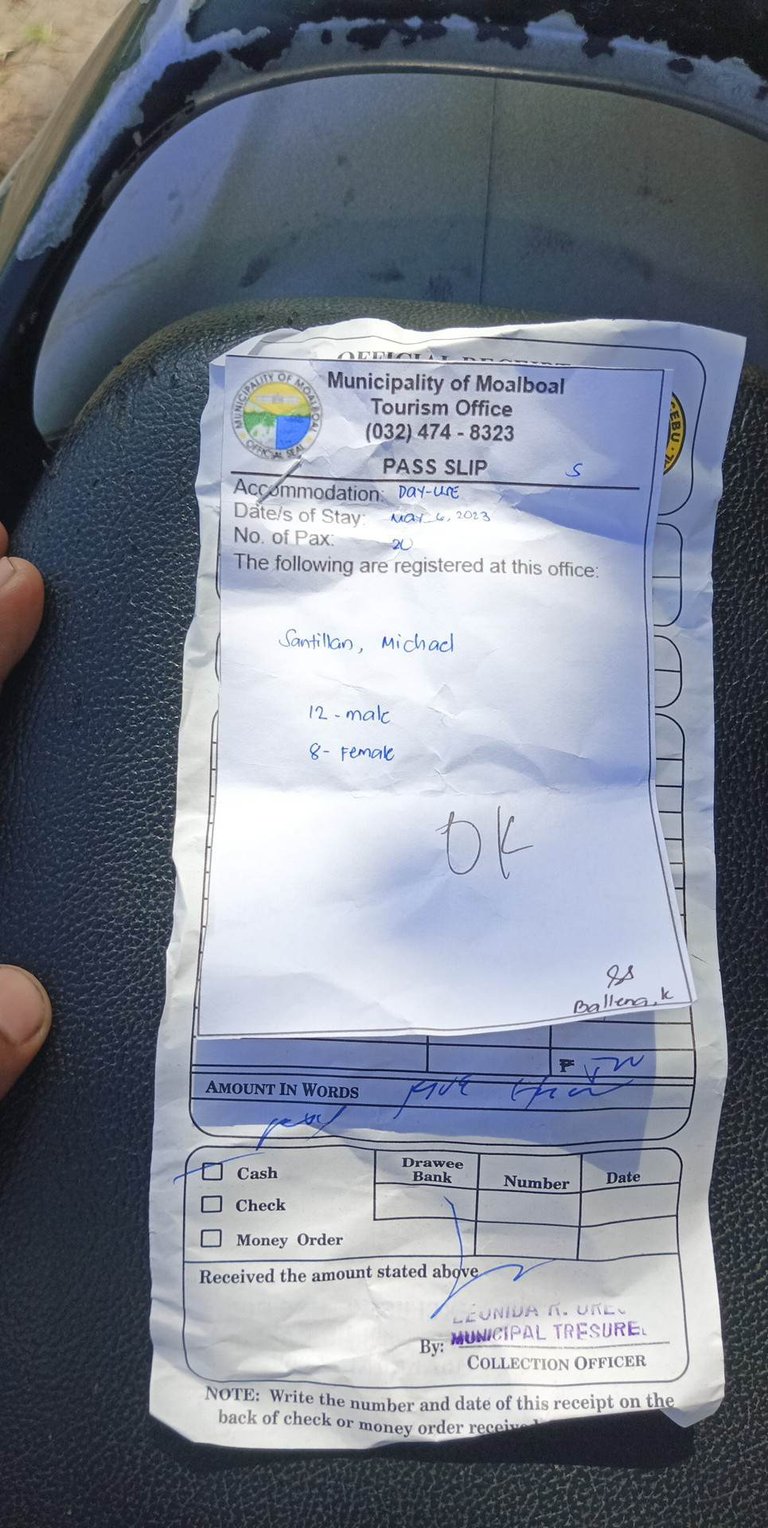 OFFICIAL RECEIPT
MUNICIPALITY OF MOALBOAL
OFFICIAL SEAL
CEBU
Municipality of Moalboal
Tourism Office
(032) 474 - 8323
PASS SLIP S
Accommodation: DAY-USE
Date/s of Stay: MAY 6, 2023
No. of Pax: 20
The following are registered at this office:
Santillan, Michael
12 - male
8 - Female
OK
Ballena, K
₱
AMOUNT IN WORDS Five
Cash
Check
Money Order
Drawee
Bank
Number
Date
Received the amount stated above
LEONIDA R.
MUNICIPAL TRESURE
By:
COLLECTION OFFICER
NOTE: Write the number and date of this receipt on the
back of check or money order